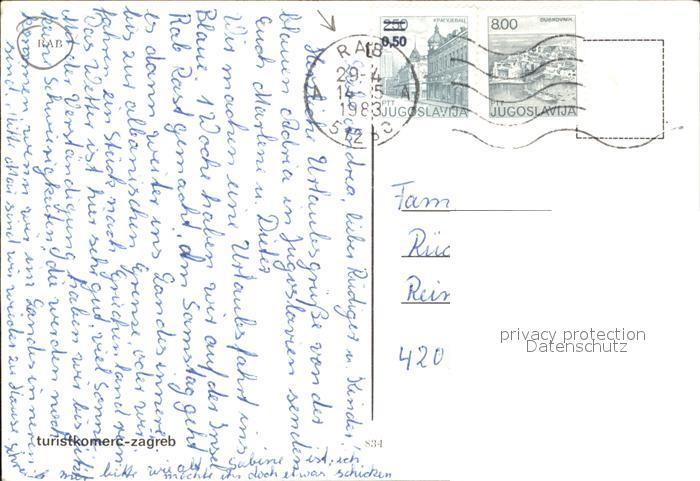 RAB
Liebe Sandra, lieber Rüdiger u. Kinder,
Herzliche Urlaubsgrüße von der
blauen Adria in Jugoslavien senden
Euch Marlene u. Dieter
Wir machen eine Urlaubsfahrt ins
Blaue. 1 Woche haben wir auf der Insel
Rab Rast gemacht. Am Samstag geht
es dann weiter ins Landesinnere
bis zur albanischen Grenze, oder wir
fahren ein Stück nach Griechenland rein.
Das Wetter ist hier sehr gut, viel Sonne.
Mit der Verständigung haben wir bis jetzt
kein Schwierigkeiten, die werden noch
kommen wenn wir im Landesinneren
sind. Mitte Mai sind wir wieder zu Hause
bitte wie alt Sabine ist, ich
möchte ihr doch etwas schicken
turistkomerc-zagreb
834
RAB
29-4
14-15
1983
2,50
0,50
PTT
JUGOSLAVIJA
8.00
DUBROVNIK
PTT
JUGOSLAVIJA
Fam
Rüd
Rein
420
privacy protection
Datenschutz